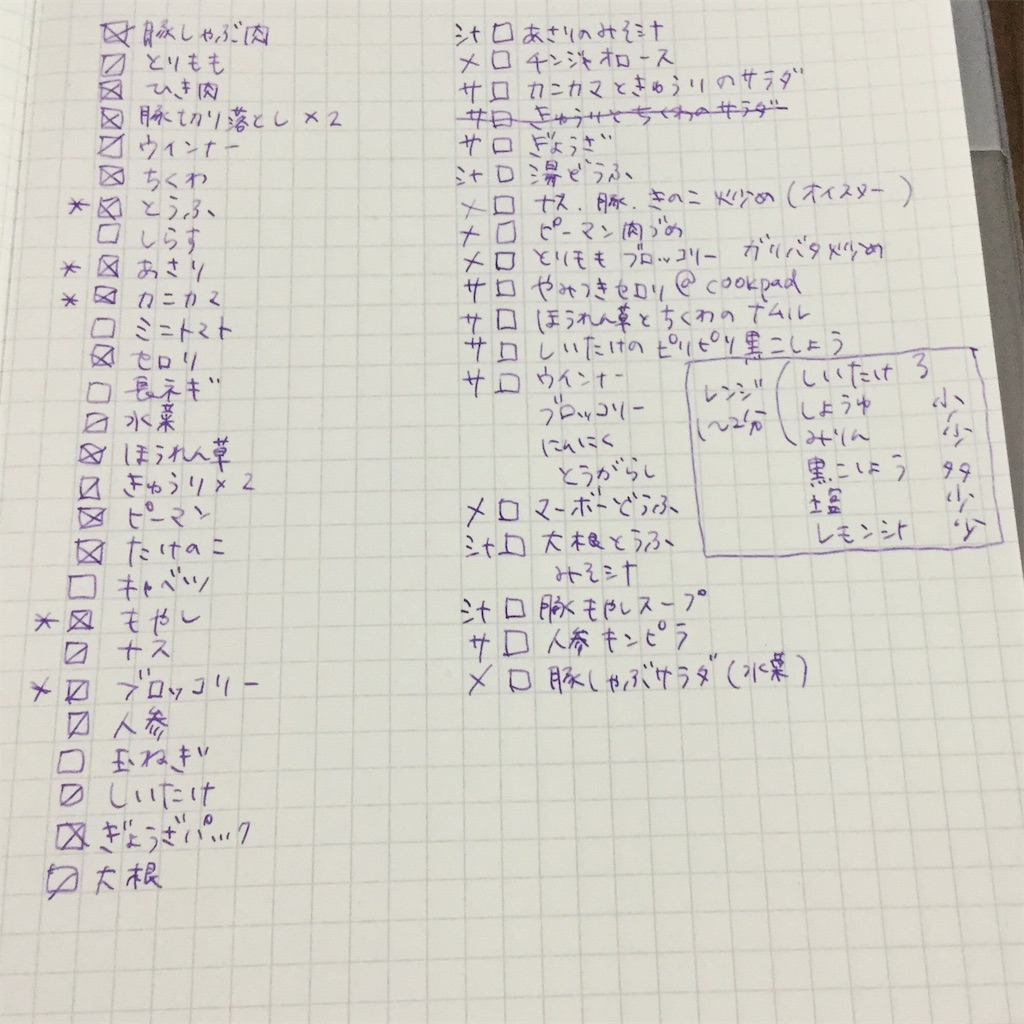 豚しゃぶ肉
とりもも
ひき肉
豚切り落とし×2
ウインナー
ちくわ
* とうふ
しらす
* あさり
* カニカマ
ミニトマト
セロリ
長ネギ
水菜
ほうれん草
きゅうり×2
ピーマン
たけのこ
キャベツ
* もやし
ナス
* ブロッコリー
人参
玉ねぎ
しいたけ
ぎょうざパック
大根
汁 □ あさりのみそ汁
メ □ チンジャオロース
サ □ カニカマときゅうりのサラダ
サ □ きゅうりとちくわのサラダ
サ □ ぎょうざ
汁 □ 湯どうふ
メ □ ナス.豚.きのこ 炒め(オイスター)
メ □ ピーマン肉づめ
メ □ とりもも ブロッコリー ガリバタ炒め
サ □ やみつきセロリ@cookpad
サ □ ほうれん草とちくわのナムル
サ □ しいたけのピリピリ黒こしょう
サ □ ウインナー
ブロッコリー
にんにく
とうがらし
メ □ マーボーどうふ
汁 □ 大根とうふ
みそ汁
汁 □ 豚もやしスープ
サ □ 人参キンピラ
メ □ 豚しゃぶサラダ(水菜)
レンジ
1〜2分
しいたけ 3
しょうゆ 小
みりん 少
黒こしょう 多々
塩 少
レモン汁 少